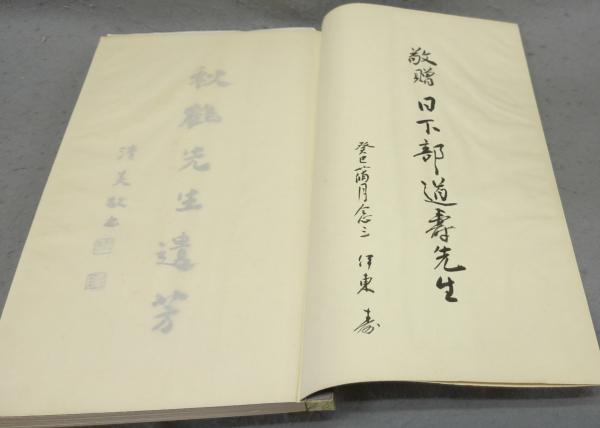 敬贈 日下部道寿先生
癸巳蒲月念三 伊東 寿
秋鶴先生遺芳
清美敬書